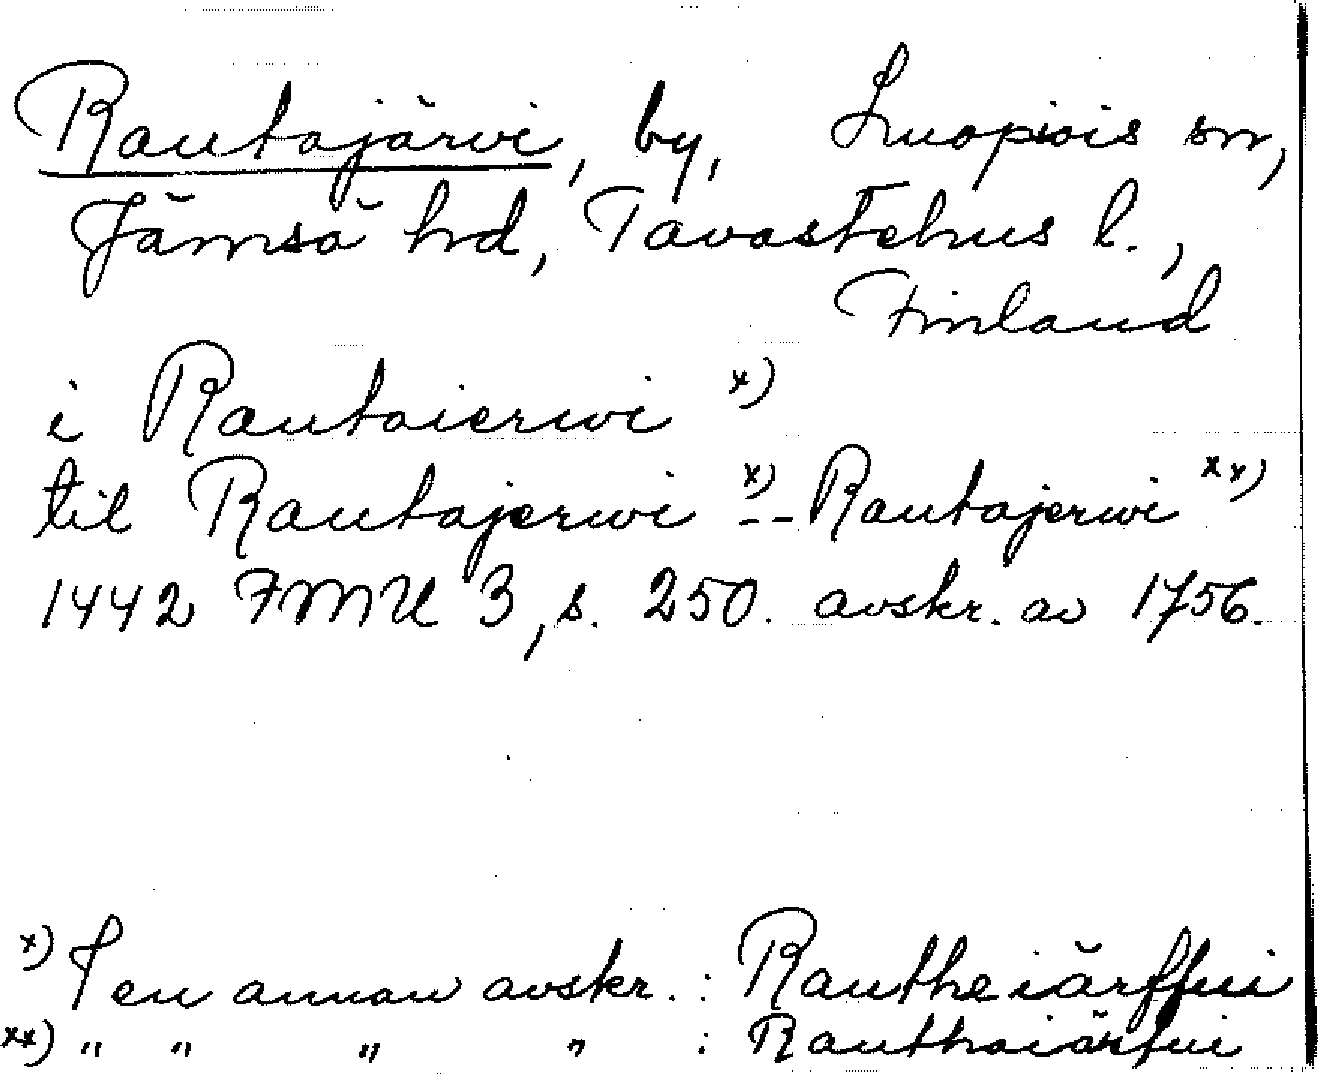 Rautajärvi, by, Luopiois sn,
Jämsä hd, Tavastehus l.,
Finland
i Rautaierwi x)
til Rautajerwi x) -- Rautajerwi xx)
1442 FMU 3, s. 250. avskr. av 1756.
x) I en annan avskr. : Rautheiärffui
xx) " " " " : Rauthaiärfui